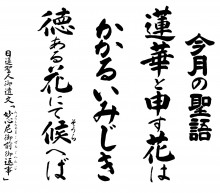 今月の聖語
蓮華と申す花は
かかるいみじき
徳ある花にて候へば
そうら
日蓮聖人御遺文「妙法尼御前御返事」